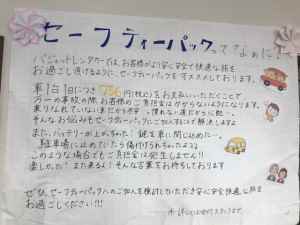 セーフティーパックってなぁに？
バジェットレンタカーでは、お客様がより安心安全で快適な旅を
お過ごし頂けるように、セーフティーパックをオススメしております。
車1台1日につき 756円(税込)をお支払いいただくことで
万一の事故の際、お客様のご負担金はかからないようになります。
乗りなれていない車だから不安… 慣れない道だから危い…
そんなお悩みもセーフティーパックにご加入することで解決しますよ
また、バッテリーが上がっちゃった！ 鍵を車に閉じ込めた…。
駐車場に止めていたら傷付けられちゃったよぅ
このような場合でもご負担金は発生しません!!
楽しかった！また来るよ！そんな言葉をお待ちしております
ぜひ、セーフティーパックへのご加入を検討していただき安心安全快適な旅を
お過ごしください!!!